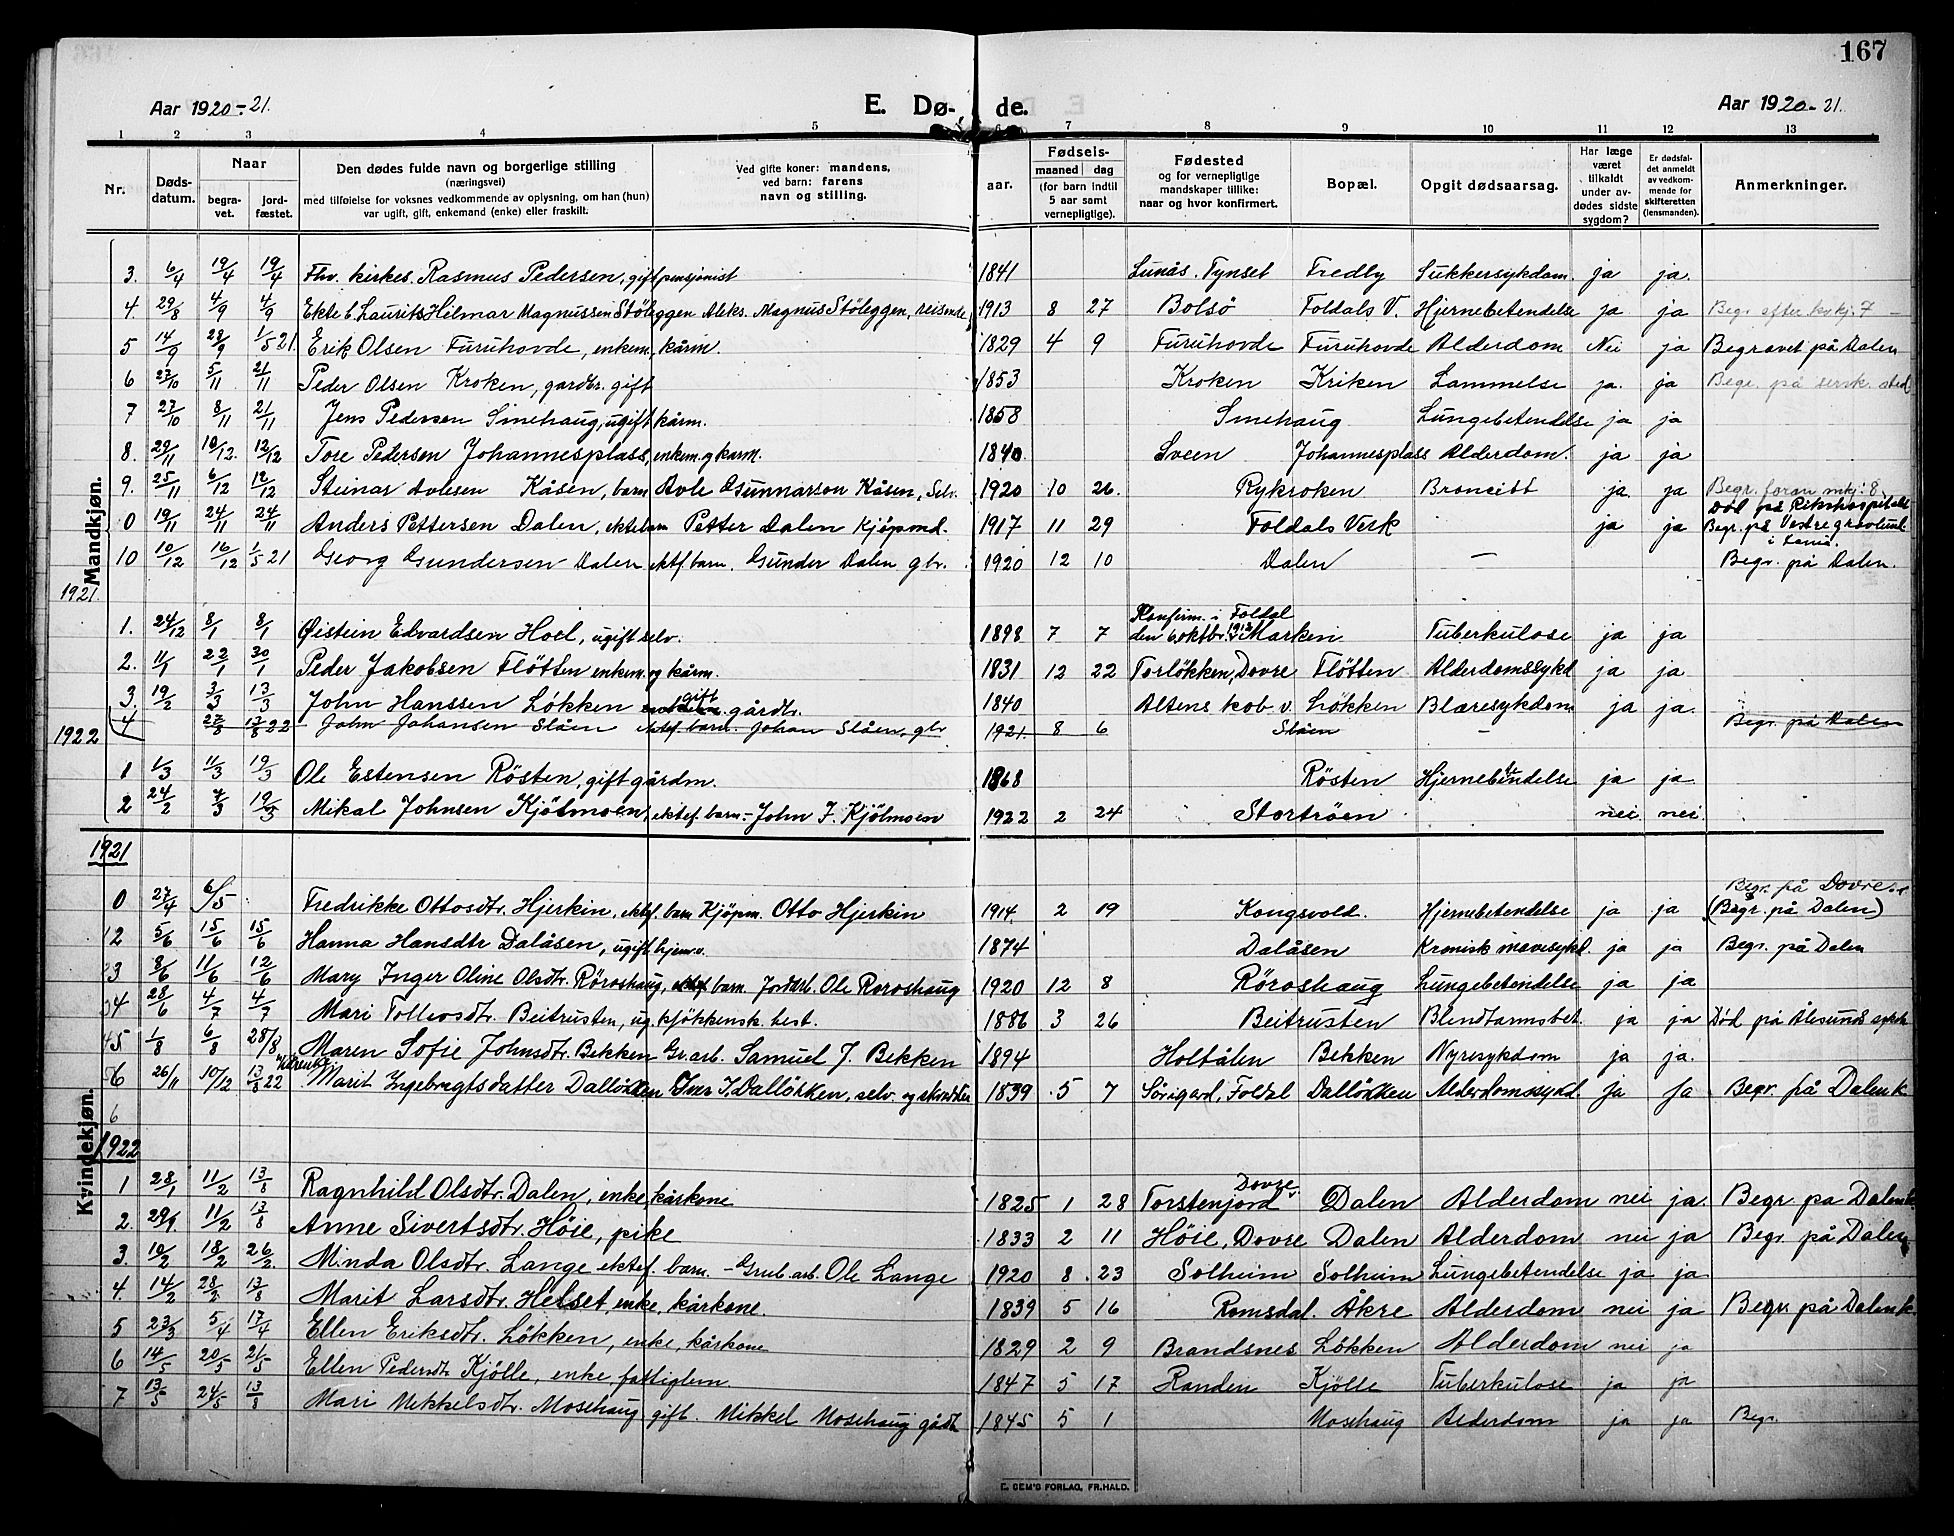 167
Aar 1920-21.
E. Dø- de.
Aar 1920-21.
1 2 3 4 5 6 7 8 9 10 11 12 13
Nr.
Døds-
datum.
Naar
begra-
vet.
jord-
fæstet.
Den dødes fulde navn og borgerlige stilling
(næringsvei)
med tilføielse for voksnes vedkommende av oplysning, om han (hun)
var ugift, gift, enkemand (enke) eller fraskilt.
Ved gifte koner: mandens,
ved barn: farens
navn og stilling.
Fødsels-
aar.
maaned dag
(for barn indtil
5 aar samt
vernepligtige).
Fødested
og for vernepligtige
mandskaper tillike:
naar og hvor konfirmert.
Bopæl.
Opgit dødsaarsag.
Har læge
været
tilkaldt
under av-
dødes sidste
sygdom?
Er dødsfal-
det anmeldt
av vedkom-
mende for
skifteretten
(lensmanden).
Anmerkninger.
Mandkjøn.
3. 6/4 19/4 19/4 Fhv. kirkes. Rasmus Pedersen, gift pensjonist 1841 Lunås. Tynset Fredly Sukkersykdom. ja ja.
4 29/8 4/9 4/9 Ekte b. Laurits Helmar Magnussen Stöleggen Aleks. Magnus Stöleggen, reisende 1913 8 27 Bolsö Foldals V. Hjernebetendelse ja ja Begr. efter kvkj. 7
5 14/9 28/9 1/5 21 Erik Olsen Furuhovde, enkem. kårm. 1829 4 9 Furuhovde Furuhovde Alderdom Nei ja Begravet på Dalen
6 27/10 5/11 21/11 Peder Olsen Kroken, gardbr. gift 1853 Kroken Kriken Lammelse ja. ja Begr. på sersk. sted
7 27/10 8/11 21/11 Jens Pedersen Smehaug, ugift kårm. 1858 Smehaug Lungebetendelse ja ja
8. 29/11 10/12. 12/12 Tore Pedersen Johannesplass, enkem. og karm. 1840 Sveen Johannesplass Alderdom. ja ja
9. 25/11 6/12 12/12 Steinar Avlesen Kåsen, barn Avle Gunnarson Kåsen, Selv. 1920 10 26. Rykroken Broncitt ja ja Begr. foran mkj: 8.
0 19/11 24/11 24/11 Anders Pettersen Dalen, ektebarn Petter Dalen Kjöpmd. 1917 11 29 Foldals Verk ja ja Død på Rikshospitalet Begr. på Vestre gravlund
10 10/12 16/12 1/5 21 Georg Gundersen Dalen ektf. barn. Gunder Dalen gbr. 1920 12 10 Dalen — Begr. på Dalen.
1921
1. 24/12 8/1 8/1 Øistein Edvardsen Hoel, ugift selv. 1898 7 7 Konfirm. i Foldal den 6 oktbr. 1912 Marken Tuberkulose ja ja
2. 11/1 22/1 30/1 Peder Jakobsen Flötten enkem. og kårm. 1831 12 22 Torlökken, Dovre Flötten Alderdomssykd ja ja
3. 19/2 3/3 13/3 John Hanssen Lökken gift gårdbr. 1840 Altens kob. v. Lökken Blæresykdom ja ja.
4 13/8 22 John Johansen Slåen ektef. barn. Johan Slåen, gbr 1921. 8 6 Slåen - Begr. på Dalen
1922
1 1/3 11/3 19/3 Ole Estensen Rösten, gift gårdm. 1868 Rösten Hjernebetendelse ja ja
2 24/2 4/3 19/3 Mikal Johnsen Kjölmoen, ektef. barn.- John J. Kjölmoen 1922 2 24 Stortröen nei nei
Kvindekjøn.
1921
0 27/4 6/5 Fredrikke Ottosdtr. Hjerkin, ektef. barn Kjöpm. Otto Hjerkin 1914 2 19 Kongsvold. Hjernebetendelse ja ja Begr. på Dovre (Begr. på Dalen)
12 5/6 15/6 15/6 Hanna Hansdtr Dalåsen, ugift hjemv. 1874 Dalåsen Kronisk mavesykd. ja ja Begr. på Dalen
3 8/6 11/6 12/6 Mary Inger Oline Olsdtr. Röroshaug, ektef. barn. Jordarb. Ole Röroshaug 1920 12 8 Röroshaug Lungebetendelse ja ja
4 28/6 4/7 4/7 Mari Tollevsdtr. Beitrusten, ug. kjökkensk. best. 1886 3 26 Beitrusten Blindtarmsbet. ja ja Död på Ålesunds sykh
5 1/8 6/8 28/8 Maren Sofie Johnsdtr. Bekken Gr. arb. Samuel J. Bekken 1894 Holtålen Bekken Nyresykdom ja ja.
6 26/11 10/12 13/8 22 Marit Ingebregtsdatter Dallökken Iver I. Dallökken, selv. og skredder 1839 5 7 Sörigard, Foldal Dallökken Alderdomssykd. ja ja Begr. på Dalen k.
6
1922
1 28/1 11/2 13/8 Ragnhild Olsdtr. Dalen, enke, kårkone 1825 1 28 Torstenjord Dovre Dalen Alderdom nei ja. Begr. pa Dalen k.
2. 29/1 11/2 13/8 Anne Sivertsdtr. Höie, pike 1833 2 11 Höie, Dovre Dalen Alderdom nei ja Begr på Dalen
3. 10/2 18/2 26/2 Minda Olsdtr. Lange ektef. barn. - Grub. arb. Ole Lange 1920 8. 23 Solheim Solheim Lungebetendelse ja ja
4. 14/2 28/2 13/8 Marit Larsdtr. Helset, enke, kårkone. 1839 5 16 Romsdal. Åkre Alderdom nei ja Begr. på Dalen k.
5 23/3 5/4 17/4 Ellen Eriksdtr. Lökken, enke, kårkone 1829 2 9 Brandsnes Lökken Alderdom nei ja
6 14/5 20/5 21/5 Ellen Pedersdtr Kjölle, enke, fattiglem 1847 5 17 Randen Kjölle Tuberkulose ja ja
7 13/5 24/5 13/8 Mari Mikkelsdtr. Mosehaug gift. Mikkel Mosehaug gådbr 1845 5 1 Mosehaug Alderdom ja ja Begr.
E. SEM'S FORLAG, FR.HALD.